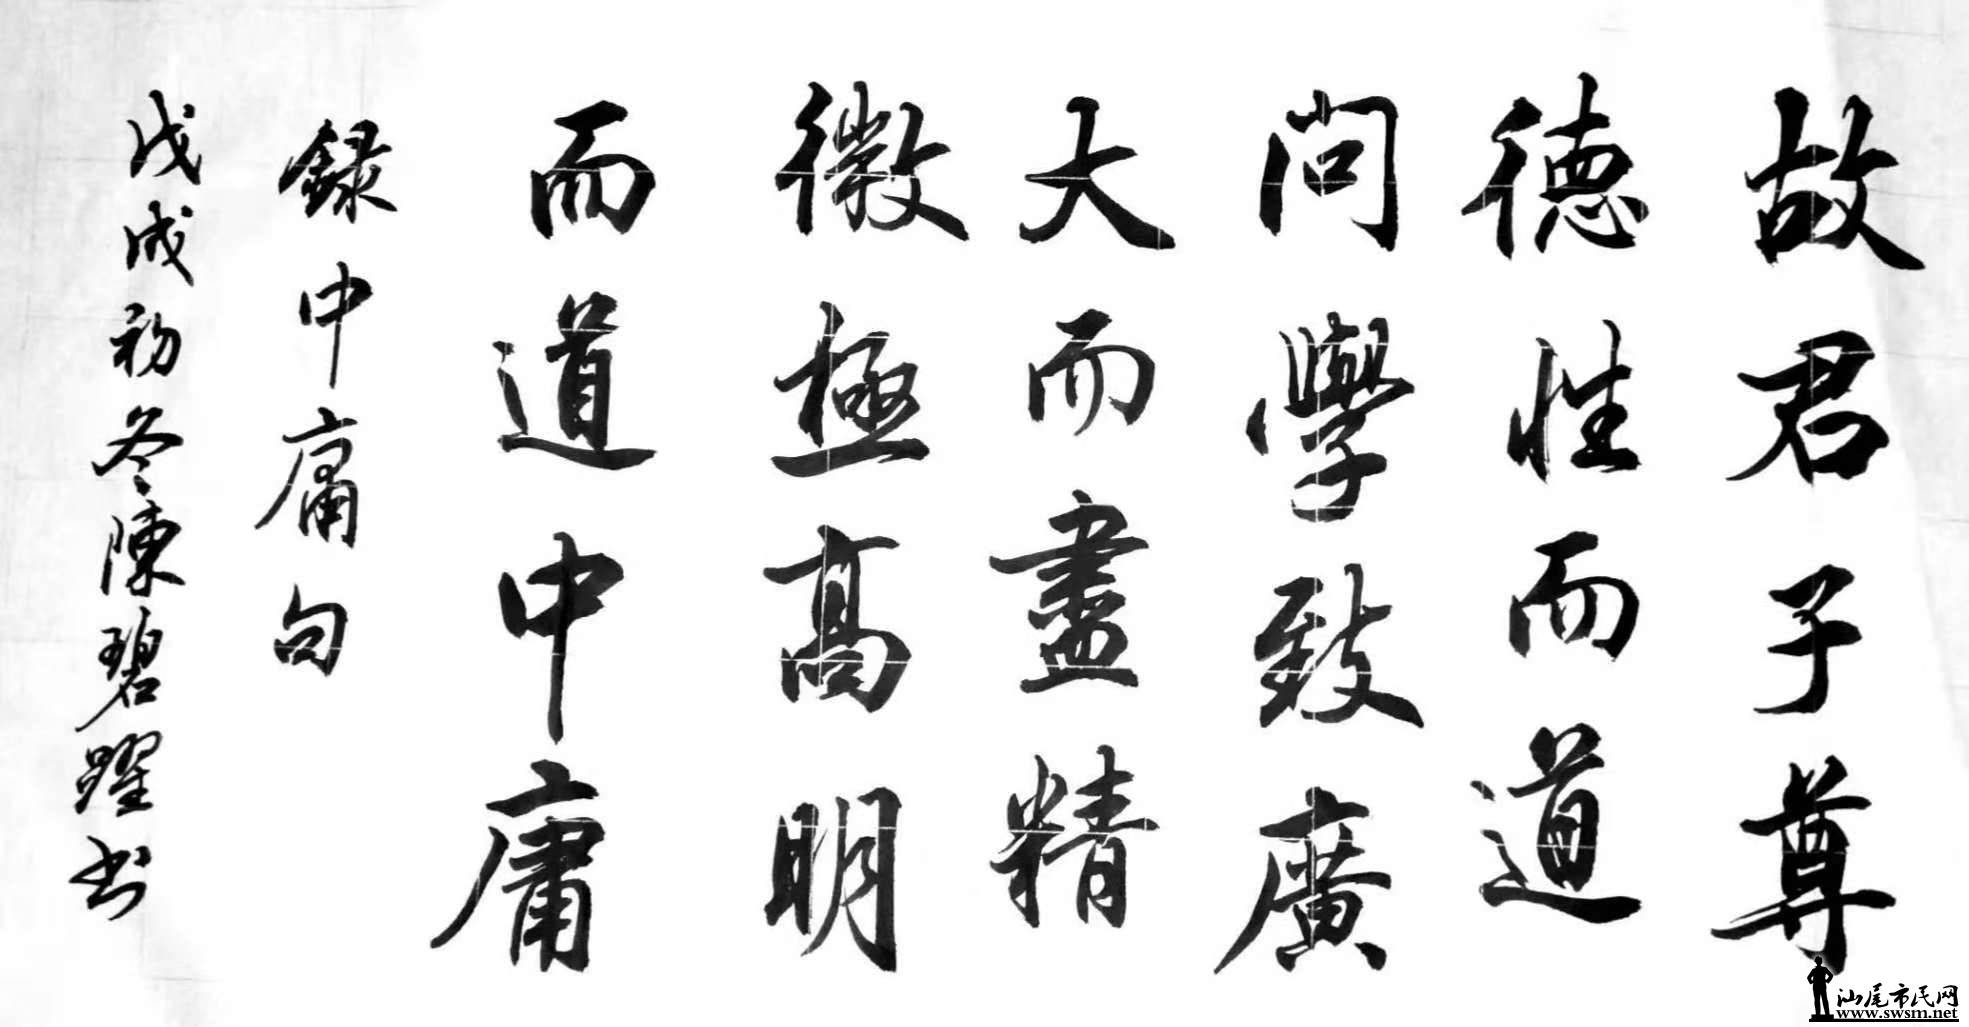 故君子尊
德性而道
問學致廣
大而盡精
微極高明
而道中庸
録中庸句
戊戌初冬陳碧躍书
汕尾市民网
www.swsm.net